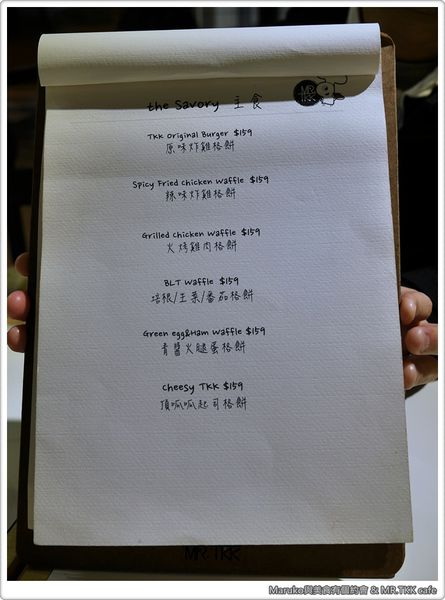 the Savory 主食
MR.
TKK
TKK Original Burger $159
原味炸雞格餅
Spicy Fried Chicken Waffle $159
辣味炸雞格餅
Grilled Chicken Waffle $159
火烤雞肉格餅
BLT Waffle $159
培根/生菜/番茄格餅
Green egg&Ham Waffle $159
青醬火腿蛋格餅
Cheesy TKK $159
頂呱呱起司格餅
MR.TKK
Maruko與美食有個約會 & MR.TKK cafe